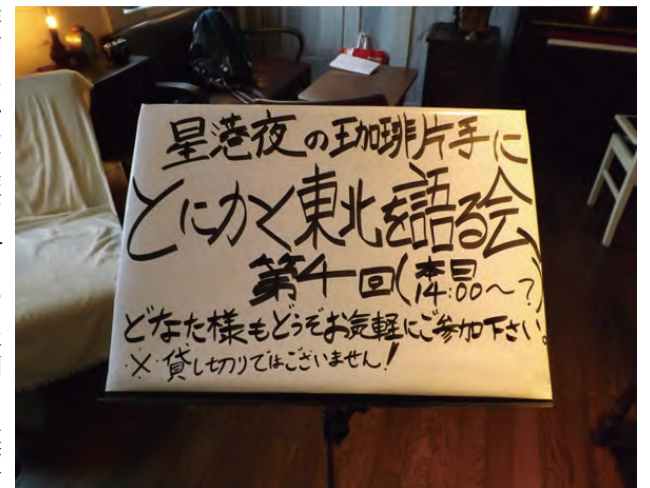 星港夜の珈琲片手に
とにかく東北を語る会
第4回(本日14:00〜?)
どなた様もどうぞお気軽にご参加下さい。
※貸し切りではございません!